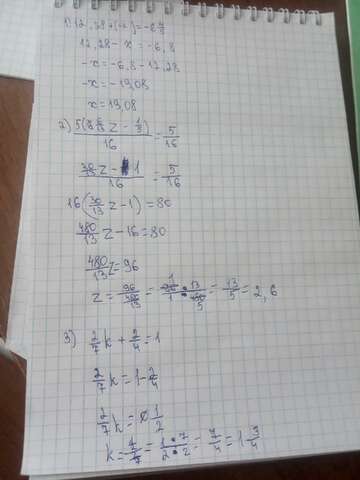 1) 12,28+(-x)=-6 4/5
12,28-x=-6,8
-x=-6,8-12,28
-x=-19,08
x=19,08
2) 5(6/13 z - 1/5)/16 = 5/16
(30/13 z - 1)/16 = 5/16
16(30/13 z-1)=80
480/13 z-16=80
480/13 z=96
z=96/(480/13)=96/1 · 13/480=13/5=2,6
3) 2/7 k+2/4=1
2/7 k=1-2/4
2/7 k=1/2
k=1·7/2·2=7/4=1 3/4